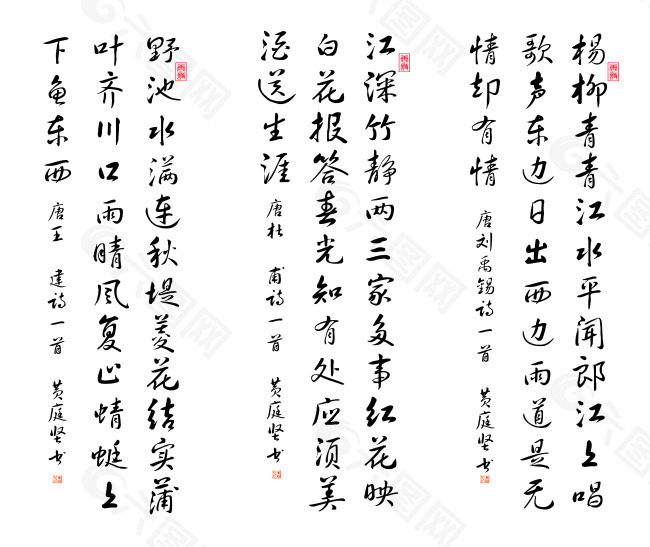 杨柳青青江水平闻郎江上唱
歌声东边日出西边雨道是无
情却有情 唐刘禹锡诗一首 黄庭坚书
江深竹静两三家多事红花映
白花报答春光知有处应须美
酒送生涯 唐杜 甫诗一首 黄庭坚书
野池水满连秋堤菱花结实蒲
叶齐川口雨晴风复止蜻蜓上
下鱼东西 唐王 建诗一首 黄庭坚书